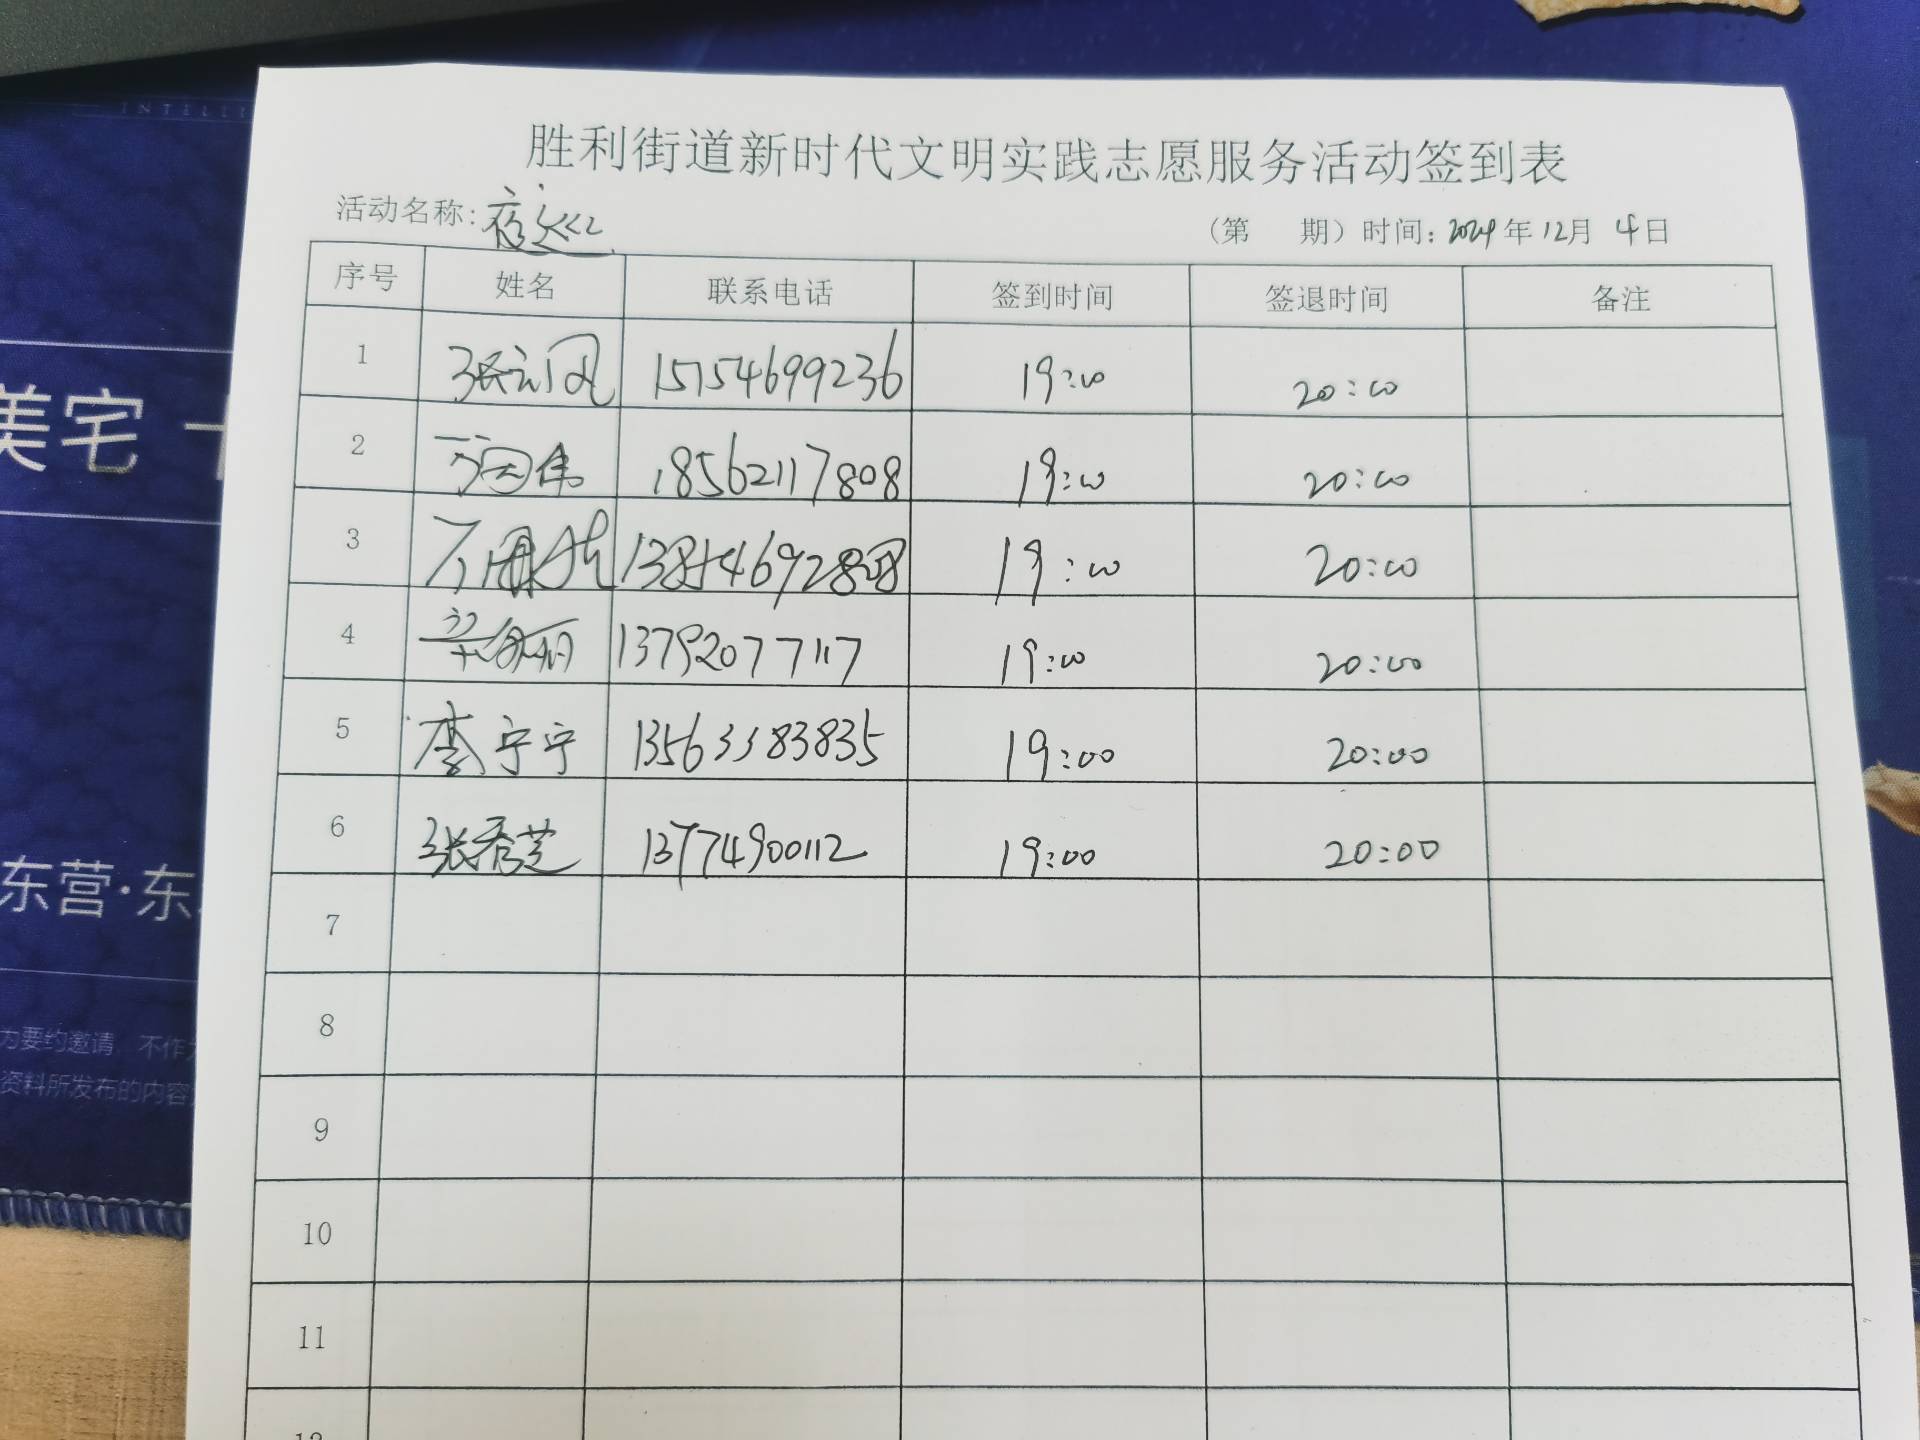 INTELLI
胜利街道新时代文明实践志愿服务活动签到表
活动名称：夜巡
（第 期）时间：2024年12月4日
序号 姓名 联系电话 签到时间 签退时间 备注
1 15754699236 19:00 20:00
2 18562117808 19:00 20:00
3 19:00 20:00
4 13792077117 19:00 20:00
5 李宁宁 13563383835 19:00 20:00
6 张秀芝 19:00 20:00
7
8
9
10
11
美宅
东营·东
为要约邀请 不作
资料所发布的内容